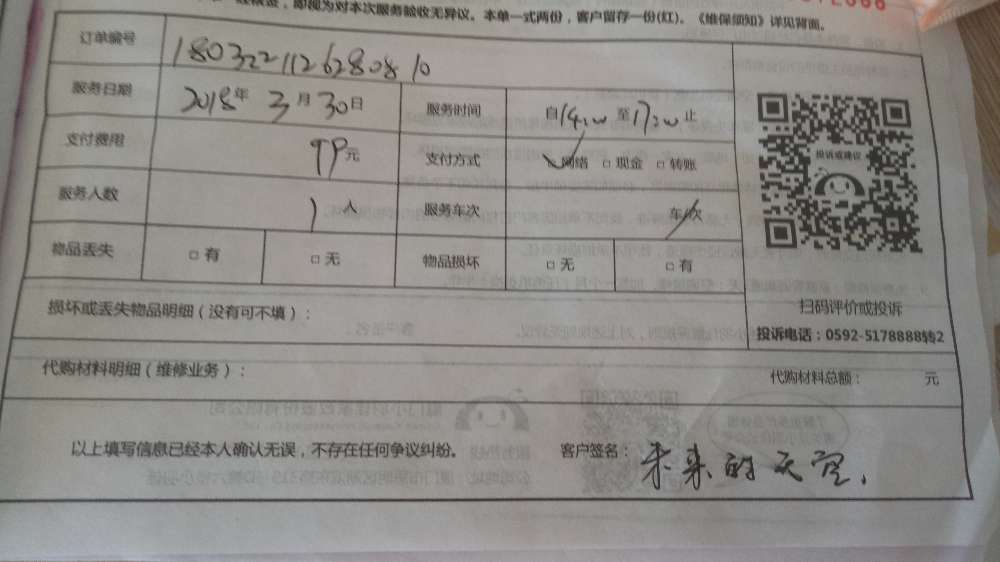 即视为对本次服务验收无异议。本单一式两份，客户留存一份(红)。《维保须知》详见背面。
订单编号 180322112628081 0
服务日期 2018年 3月 30日 服务时间 自14:00 至17:00 止
支付费用 99元 支付方式 网络 □ 现金 □ 转账
投诉或建议
服务人数 1 人 服务车次 车/次
物品丢失 □ 有 □ 无 物品损坏 □ 无 □ 有
损坏或丢失物品明细（没有可不填）：
扫码评价或投诉
投诉电话：0592-5178888转2
代购材料明细（维修业务）： 代购材料总额： 元
以上填写信息已经本人确认无误，不存在任何争议纠纷。 客户签名：未来的天空.